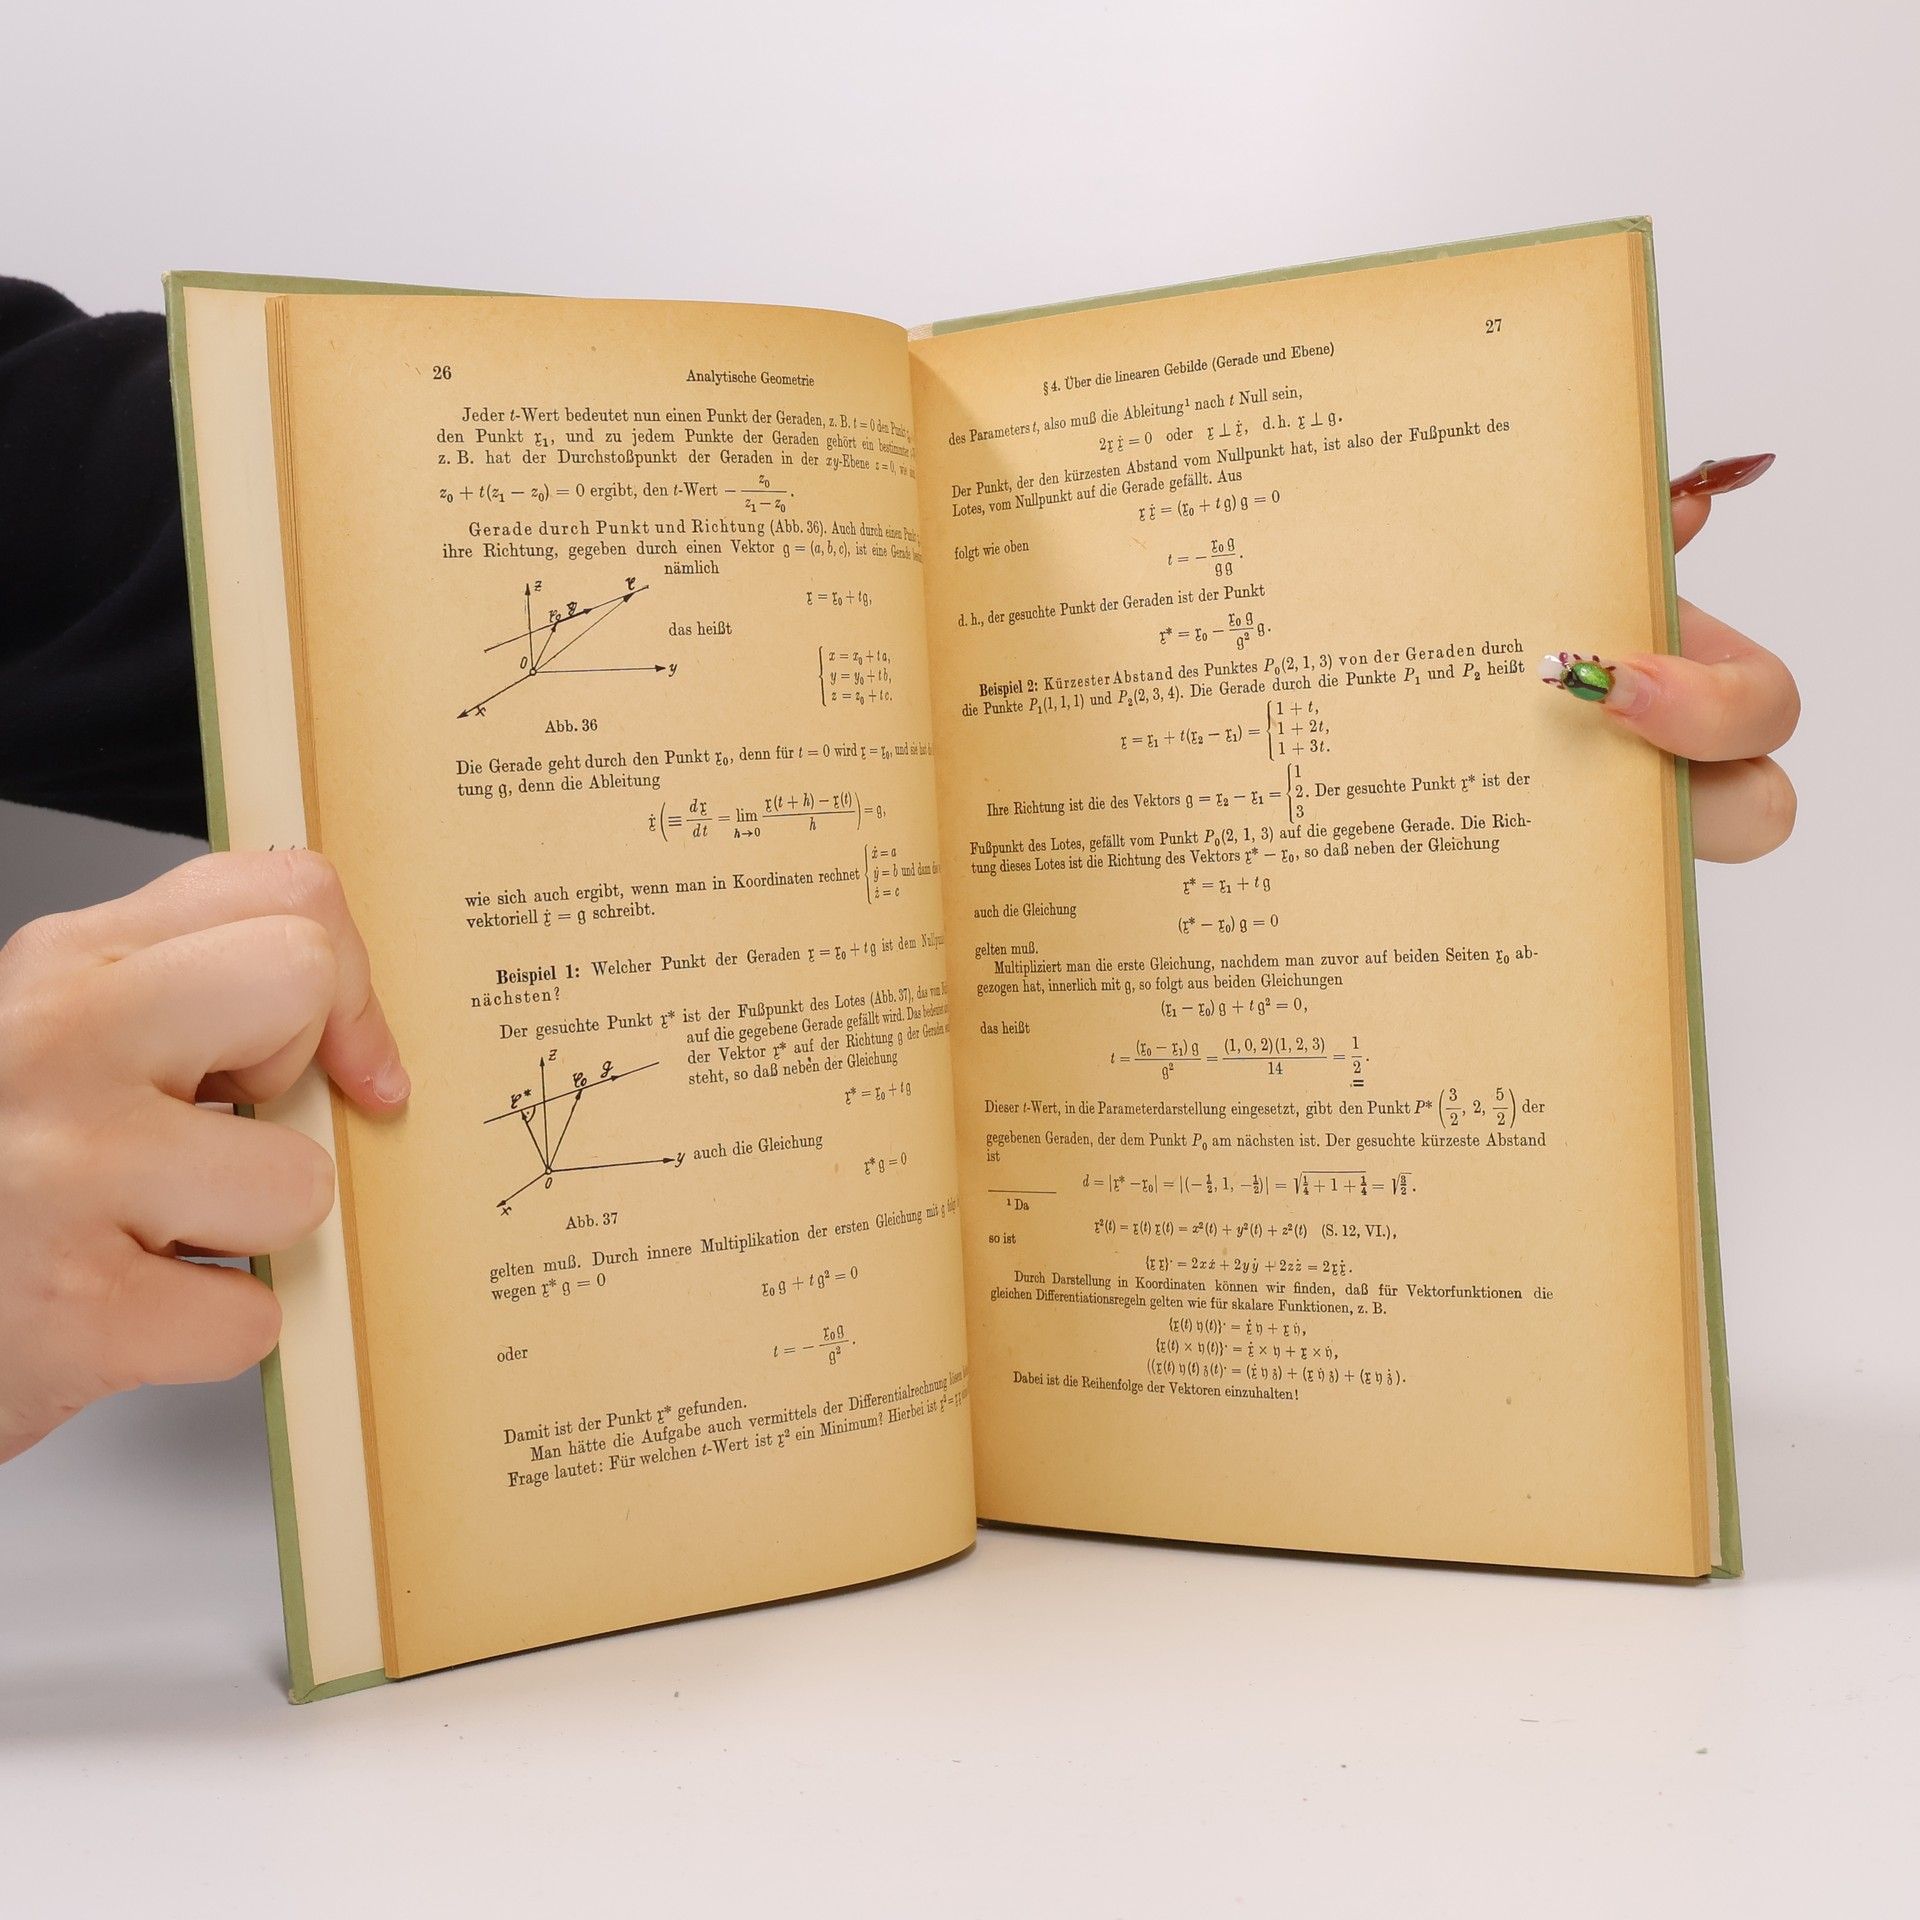 26
Analytische Geometrie
Jeder t-Wert bedeutet nun einen Punkt der Geraden, z. B. t = 0 den Punkt
den Punkt 𝔵₁, und zu jedem Punkte der Geraden gehört ein bestimmter
z. B. hat der Durchstoßpunkt der Geraden in der xy-Ebene z = 0, wie
z₀ + t(z₁ − z₀) = 0 ergibt, den t-Wert − z₀/(z₁ − z₀).
Gerade durch Punkt und Richtung (Abb. 36). Auch durch einen
ihre Richtung, gegeben durch einen Vektor 𝔤 = (a, b, c), ist eine Gerade
nämlich
𝔵 = 𝔵₀ + t𝔤,
das heißt
x = x₀ + ta,
y = y₀ + tb,
z = z₀ + tc.
z
𝔵
𝔵₀ 𝔤
0
y
x
Abb. 36
Die Gerade geht durch den Punkt 𝔵₀, denn für t = 0 wird 𝔵 = 𝔵₀, und sie hat
tung 𝔤, denn die Ableitung
𝔵̇ (≡ d𝔵/dt = lim h→0 (𝔵(t + h) − 𝔵(t))/h) = 𝔤,
wie sich auch ergibt, wenn man in Koordinaten rechnet { ẋ = a, ẏ = b, ż = c und dann
vektoriell 𝔵̇ = 𝔤 schreibt.
Beispiel 1: Welcher Punkt der Geraden 𝔵 = 𝔵₀ + t𝔤 ist dem
nächsten?
Der gesuchte Punkt 𝔵* ist der Fußpunkt des Lotes (Abb. 37), das vom
auf die gegebene Gerade gefällt wird. Das bedeutet
der Vektor 𝔵* auf der Richtung 𝔤 der Geraden
steht, so daß neben der Gleichung
𝔵* = 𝔵₀ + t𝔤
z
𝔵*
𝔵₀ 𝔤
0
y
x
auch die Gleichung
𝔵* 𝔤 = 0
Abb. 37
gelten muß. Durch innere Multiplikation der ersten Gleichung mit 𝔤 folgt
wegen 𝔵* 𝔤 = 0
𝔵₀ 𝔤 + t 𝔤² = 0
oder
t = − 𝔵₀𝔤/𝔤².
Damit ist der Punkt 𝔵* gefunden.
Man hätte die Aufgabe auch vermittels der Differentialrechnung lösen
Frage lautet: Für welchen t-Wert ist 𝔵² ein Minimum? Hierbei ist 𝔵² =
27
§ 4. Über die linearen Gebilde (Gerade und Ebene)
des Parameters t, also muß die Ableitung¹ nach t Null sein,
2𝔵 𝔵̇ = 0 oder 𝔵 ⊥ 𝔵̇, d. h. 𝔵 ⊥ 𝔤.
Der Punkt, der den kürzesten Abstand vom Nullpunkt hat, ist also der Fußpunkt des
Lotes, vom Nullpunkt auf die Gerade gefällt. Aus
𝔵 𝔵̇ = (𝔵₀ + t 𝔤) 𝔤 = 0
folgt wie oben
t = − 𝔵₀ 𝔤/𝔤𝔤.
d. h., der gesuchte Punkt der Geraden ist der Punkt
𝔵* = 𝔵₀ − (𝔵₀ 𝔤/𝔤²) 𝔤.
Beispiel 2: Kürzester Abstand des Punktes P₀(2, 1, 3) von der Geraden durch
die Punkte P₁(1, 1, 1) und P₂(2, 3, 4). Die Gerade durch die Punkte P₁ und P₂ heißt
𝔵 = 𝔵₁ + t(𝔵₂ − 𝔵₁) = { 1 + t, 1 + 2t, 1 + 3t.
Ihre Richtung ist die des Vektors 𝔤 = 𝔵₂ − 𝔵₁ = { 1 2 3 . Der gesuchte Punkt 𝔵* ist der
Fußpunkt des Lotes, gefällt vom Punkt P₀(2, 1, 3) auf die gegebene Gerade. Die Rich-
tung dieses Lotes ist die Richtung des Vektors 𝔵* − 𝔵₀, so daß neben der Gleichung
𝔵* = 𝔵₁ + t 𝔤
auch die Gleichung
(𝔵* − 𝔵₀) 𝔤 = 0
gelten muß.
Multipliziert man die erste Gleichung, nachdem man zuvor auf beiden Seiten 𝔵₀ ab-
gezogen hat, innerlich mit 𝔤, so folgt aus beiden Gleichungen
(𝔵₁ − 𝔵₀) 𝔤 + t 𝔤² = 0,
das heißt
t = (𝔵₀ − 𝔵₁) 𝔤/𝔤² = (1, 0, 2)(1, 2, 3)/14 = 1/2.
Dieser t-Wert, in die Parameterdarstellung eingesetzt, gibt den Punkt P* (3/2, 2, 5/2) der
gegebenen Geraden, der dem Punkt P₀ am nächsten ist. Der gesuchte kürzeste Abstand
ist
d = |𝔵* − 𝔵₀| = |(−½, 1, −½)| = √(¼ + 1 + ¼) = √(3/2).
¹ Da
𝔵²(t) = 𝔵(t) 𝔵(t) = x²(t) + y²(t) + z²(t) (S. 12, VI.),
so ist
{𝔵 𝔵}˙ = 2xẋ + 2yẏ + 2zż = 2𝔵𝔵̇.
Durch Darstellung in Koordinaten können wir finden, daß für Vektorfunktionen die
gleichen Differentiationsregeln gelten wie für skalare Funktionen, z. B.
{𝔵(t) 𝔶(t)}˙ = 𝔵̇ 𝔶 + 𝔵 𝔶̇,
{𝔵(t) × 𝔶(t)}˙ = 𝔵̇ × 𝔶 + 𝔵 × 𝔶̇,
((𝔵(t) 𝔶(t) 𝔷(t)˙ = (𝔵̇ 𝔶 𝔷) + (𝔵 𝔶̇ 𝔷) + (𝔵 𝔶 𝔷̇).
Dabei ist die Reihenfolge der Vektoren einzuhalten!